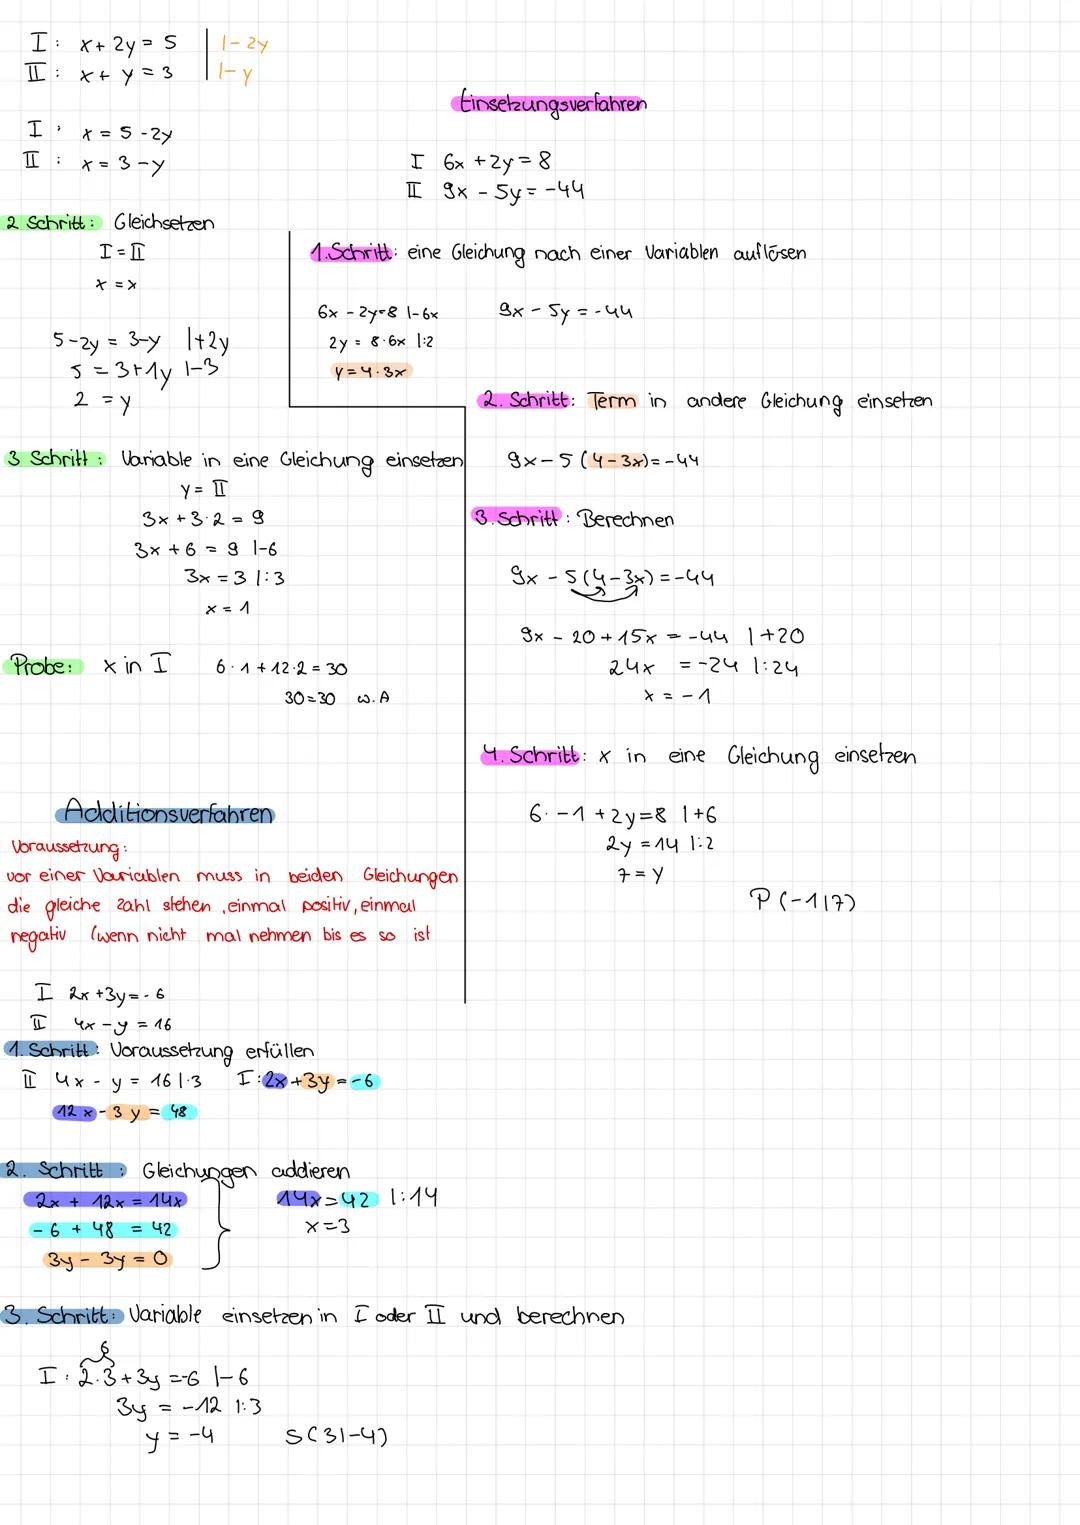 I : x + 2y = 5 | |- 2y
II : x + y = 3 | |- y
I : x = 5 - 2y
II : x = 3 - y
2 Schritt : Gleichsetzen
I = II
x = x
5 - 2y = 3 - y |+2y
5 = 3 + 1y |-3
2 = y
3 Schritt : Variable in eine Gleichung einsetzen
y = II
3x + 3·2 = 9
3x + 6 = 9 |-6
3x = 3 |:3
x = 1
Probe: x in I 6·1 + 12·2 = 30
30 = 30 w.A
Einsetzungsverfahren
I 6x + 2y = 8
II 9x - 5y = -44
1.Schritt: eine Gleichung nach einer Variablen auflösen
6x - 2y = 8 |-6x 9x - 5y = -44
2y = 8·6x |:2
y = 4·3x
2. Schritt: Term in andere Gleichung einsetzen
9x - 5 (4 - 3x) = -44
3. Schritt : Berechnen
9x - 5 (4 - 3x) = -44
9x - 20 + 15x = -44 |+20
24x = -24 |:24
x = -1
4. Schritt: x in eine Gleichung einsetzen
6· -1 + 2y = 8 |+6
2y = 14 |:2
7 = y
P (-1|7)
Additionsverfahren
Voraussetzung:
vor einer Variablen muss in beiden Gleichungen
die gleiche Zahl stehen, einmal positiv, einmal
negativ (wenn nicht mal nehmen bis es so ist
I 2x + 3y = -6
II 4x - y = 16
1. Schritt : Voraussetzung erfüllen
II 4x - y = 16 |·3 I: 2x + 3y = -6
12x - 3y = 48
2. Schritt : Gleichungen addieren
2x + 12x = 14x 14x = 42 |:14
-6 + 48 = 42 x = 3
3y - 3y = 0
3. Schritt: Variable einsetzen in I oder II und berechnen
6
I : 2·3 + 3y = -6 |-6
3y = -12 |:3
y = -4 S(3|-4)